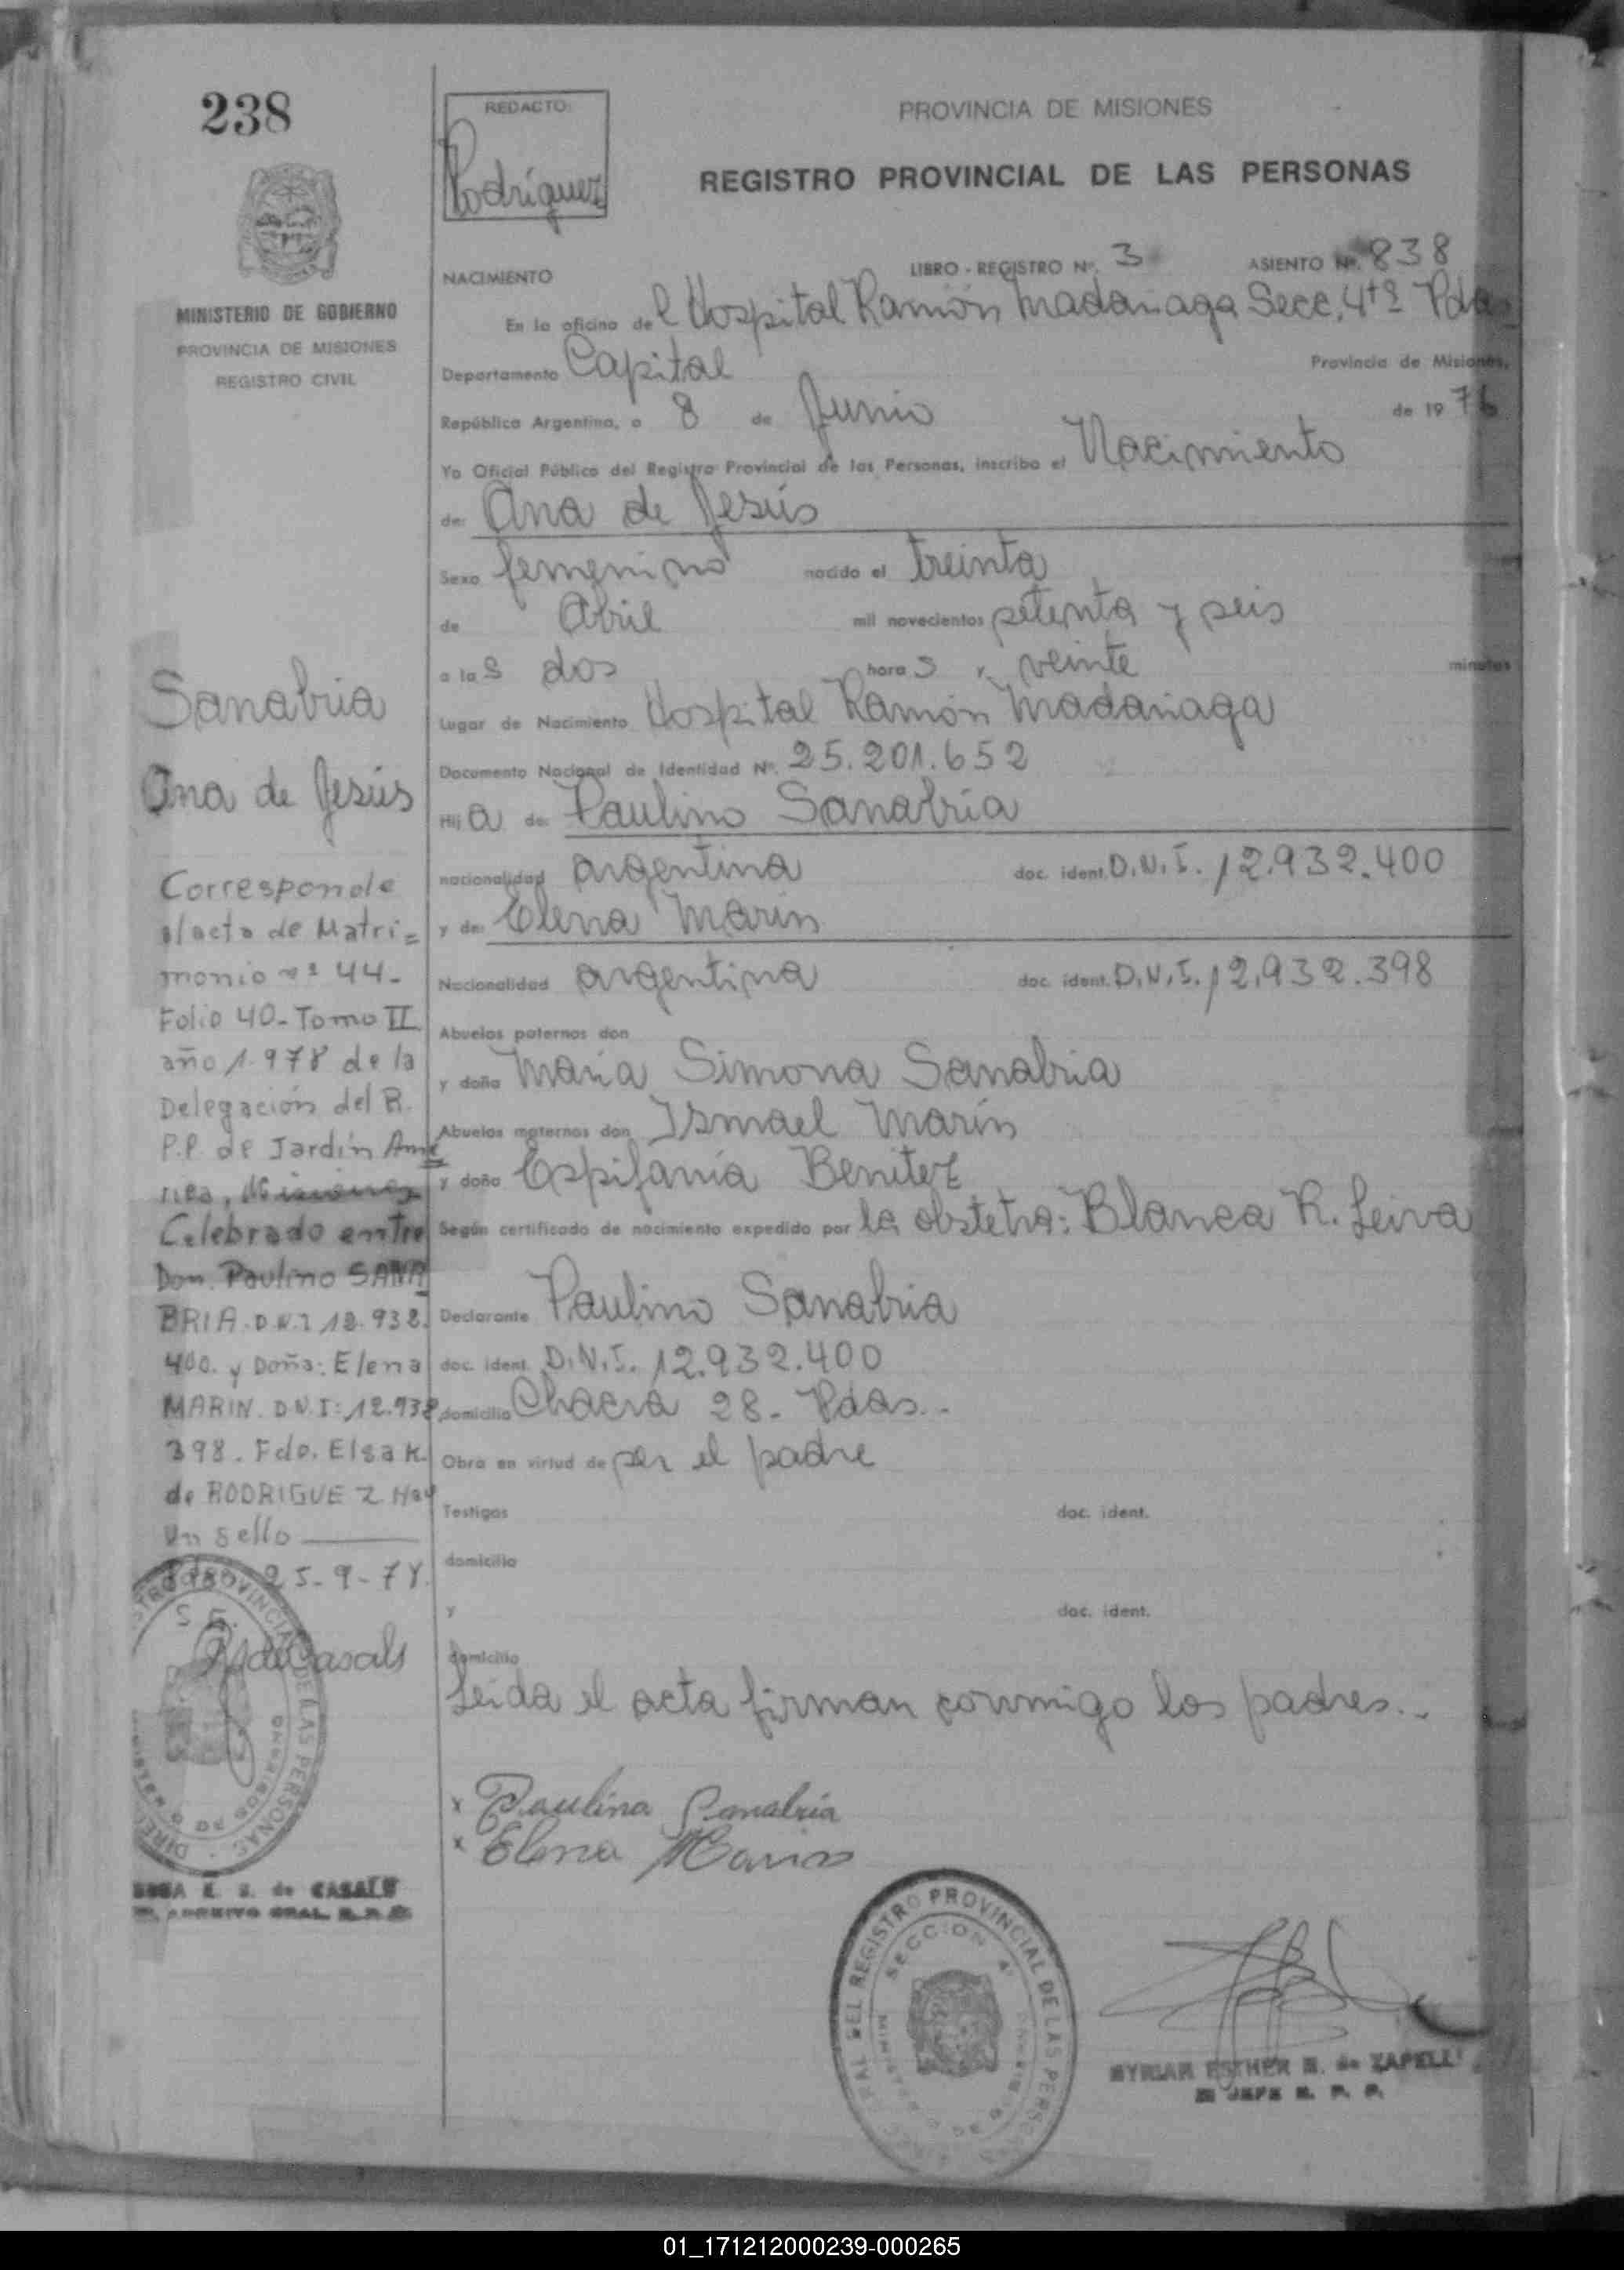 238
REDACTO:
Rodríguez
PROVINCIA DE MISIONES
REGISTRO PROVINCIAL DE LAS PERSONAS
MINISTERIO DE GOBIERNO
PROVINCIA DE MISIONES
REGISTRO CIVIL
NACIMIENTO
LIBRO - REGISTRO Nº. 3
ASIENTO Nº. 838
En la oficina del Hospital Ramón Madariaga Secc. 4tª Pdas
Departamento Capital Provincia de Misiones,
República Argentina, a 8 de Junio de 1976
Yo Oficial Público del Registro Provincial de las Personas, inscribo el Nacimiento
de: Ana de Jesús
Sexo femenino nacido el treinta
de Abril mil novecientos setenta y seis
a las dos horas y veinte minutos
Lugar de Nacimiento Hospital Ramón Madariaga
Documento Nacional de Identidad Nº. 25.201.652
Hija de: Paulino Sanabria
nacionalidad argentina doc. ident. D.N.I. 12.932.400
y de: Elena Marin
Nacionalidad argentina doc. ident. D.N.I. 12.932.398
Abuelos paternos don
y doña María Simona Sanabria
Abuelos maternos don Ismael Marín
y doña Espifanía Benitez
Según certificado de nacimiento expedido por la obstetra: Blanca R. Leiva
Declarante Paulino Sanabria
doc. ident. D.N.I. 12.932.400
domicilio Chacra 28 - Pdas.-
Obra en virtud de ser el padre
Testigos doc. ident.
domicilio
y doc. ident.
domicilio
Leida el acta firman conmigo los padres.-
x Paulino Sanabria
x Elena Marin
Sanabria
Ana de Jesús
Corresponde
al acta de Matri=
monio nº 44-
Folio 40-Tomo II
año 1.978 de la
Delegación del R.
P.P. de Jardín Amé
rica, Misiones
Celebrado entre
Don Paulino SANA
BRIA D.N.I 12.932.
400. y Doña: Elena
MARIN. D.N.I: 12.932
398. Fdo. Elsa K.
de RODRIGUEZ Hay
un sello
25-9-78.
de Casals
E. S. de CASALS
REGISTRO PROVINCIAL DE LAS PERSONAS
SECCION 4ª
MYRIAM ESTHER B. de ZAPELLI
JEFE R. P. P.
01_171212000239-000265